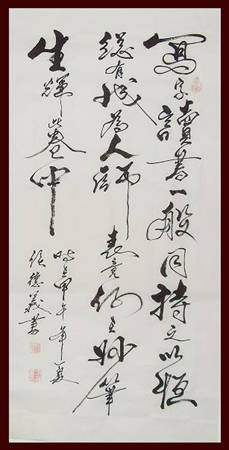 寫字讀書一般同持之以恒
總有成為人師表竟妙筆
生輝此卷中
時在甲午年夏
德義